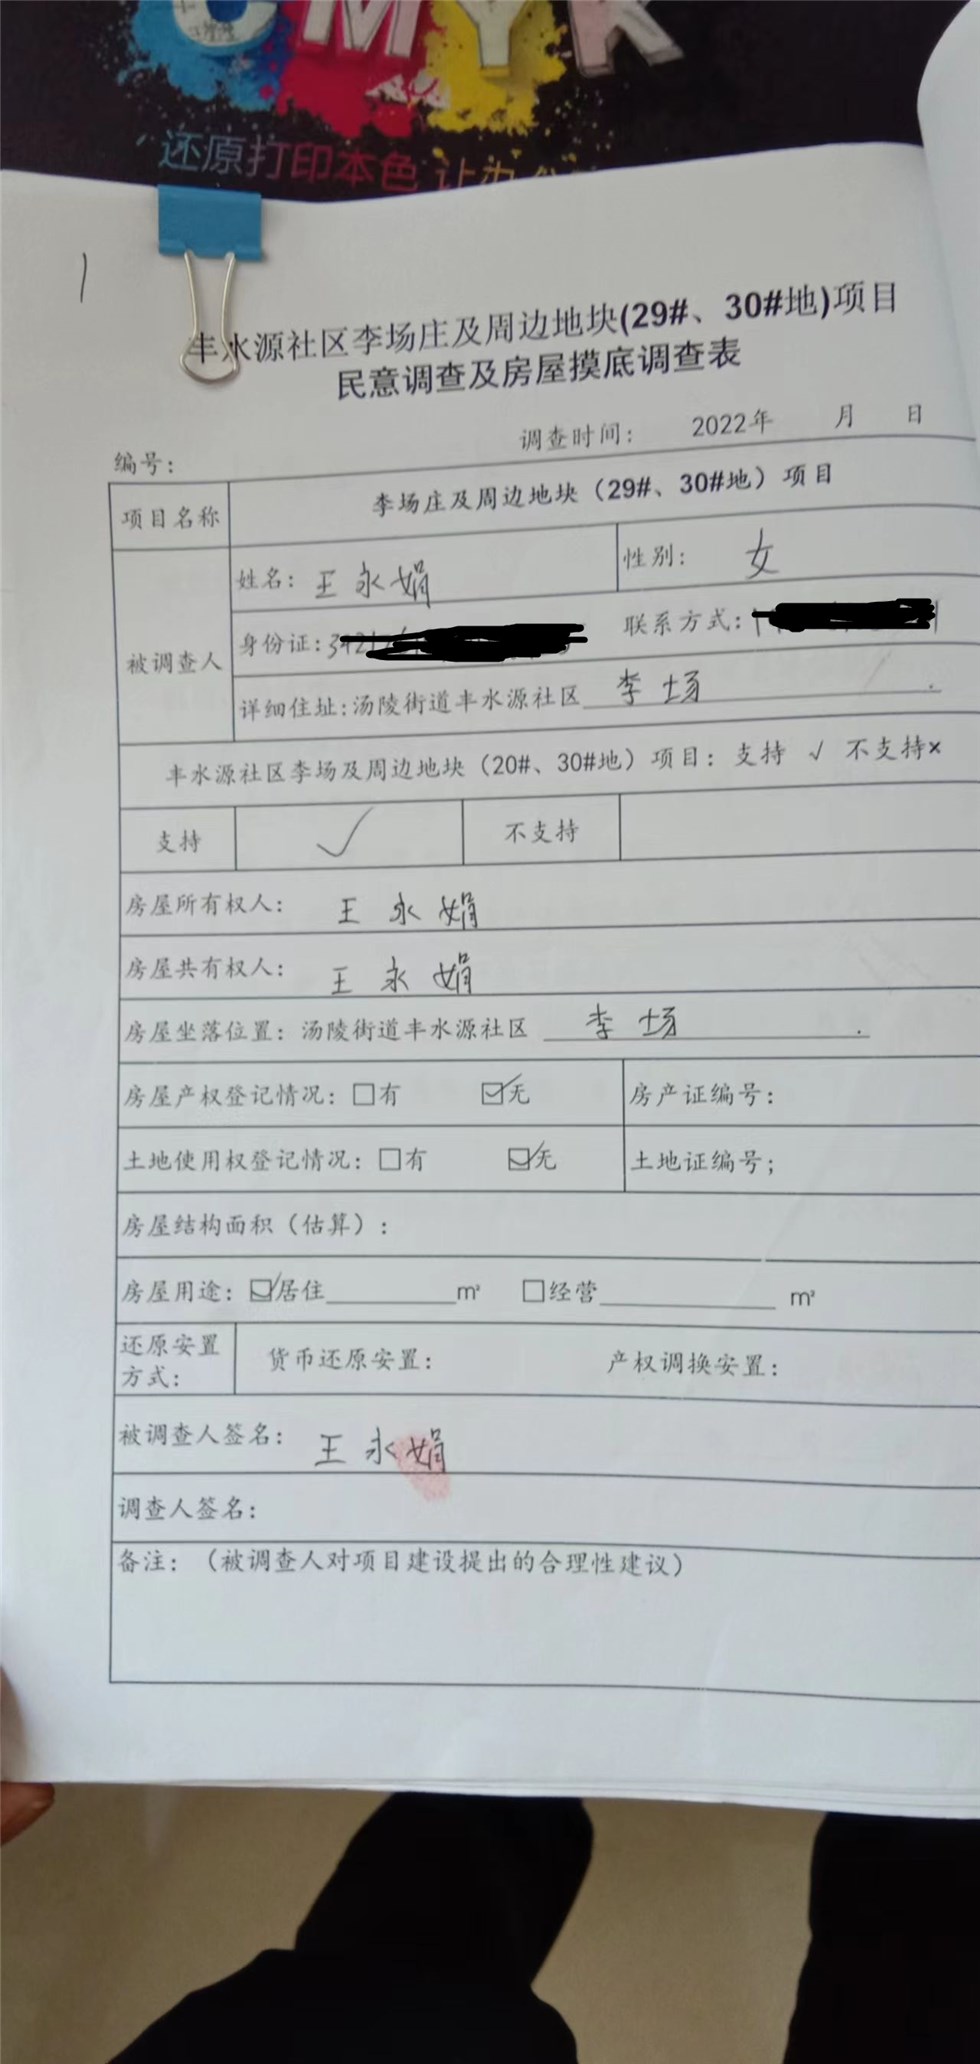 CMYK
还原打印本色 让办
1
丰水源社区李场庄及周边地块(29#、30#地)项目
民意调查及房屋摸底调查表
调查时间： 2022年 月 日
编号：
项目名称 李场庄及周边地块（29#、30#地）项目
被调查人
姓名：王永娟 性别： 女
身份证： 联系方式：
详细住址:汤陵街道丰水源社区 李场
丰水源社区李场及周边地块（20#、30#地）项目：支持 √ 不支持×
支持 √ 不支持
房屋所有权人： 王永娟
房屋共有权人： 王永娟
房屋坐落位置：汤陵街道丰水源社区 李场
房屋产权登记情况：□有 ☑无 房产证编号：
土地使用权登记情况：□有 ☑无 土地证编号；
房屋结构面积（估算）：
房屋用途：☑居住 m² □经营 m²
还原安置方式： 货币还原安置： 产权调换安置：
被调查人签名： 王永娟
调查人签名：
备注：（被调查人对项目建设提出的合理性建议）